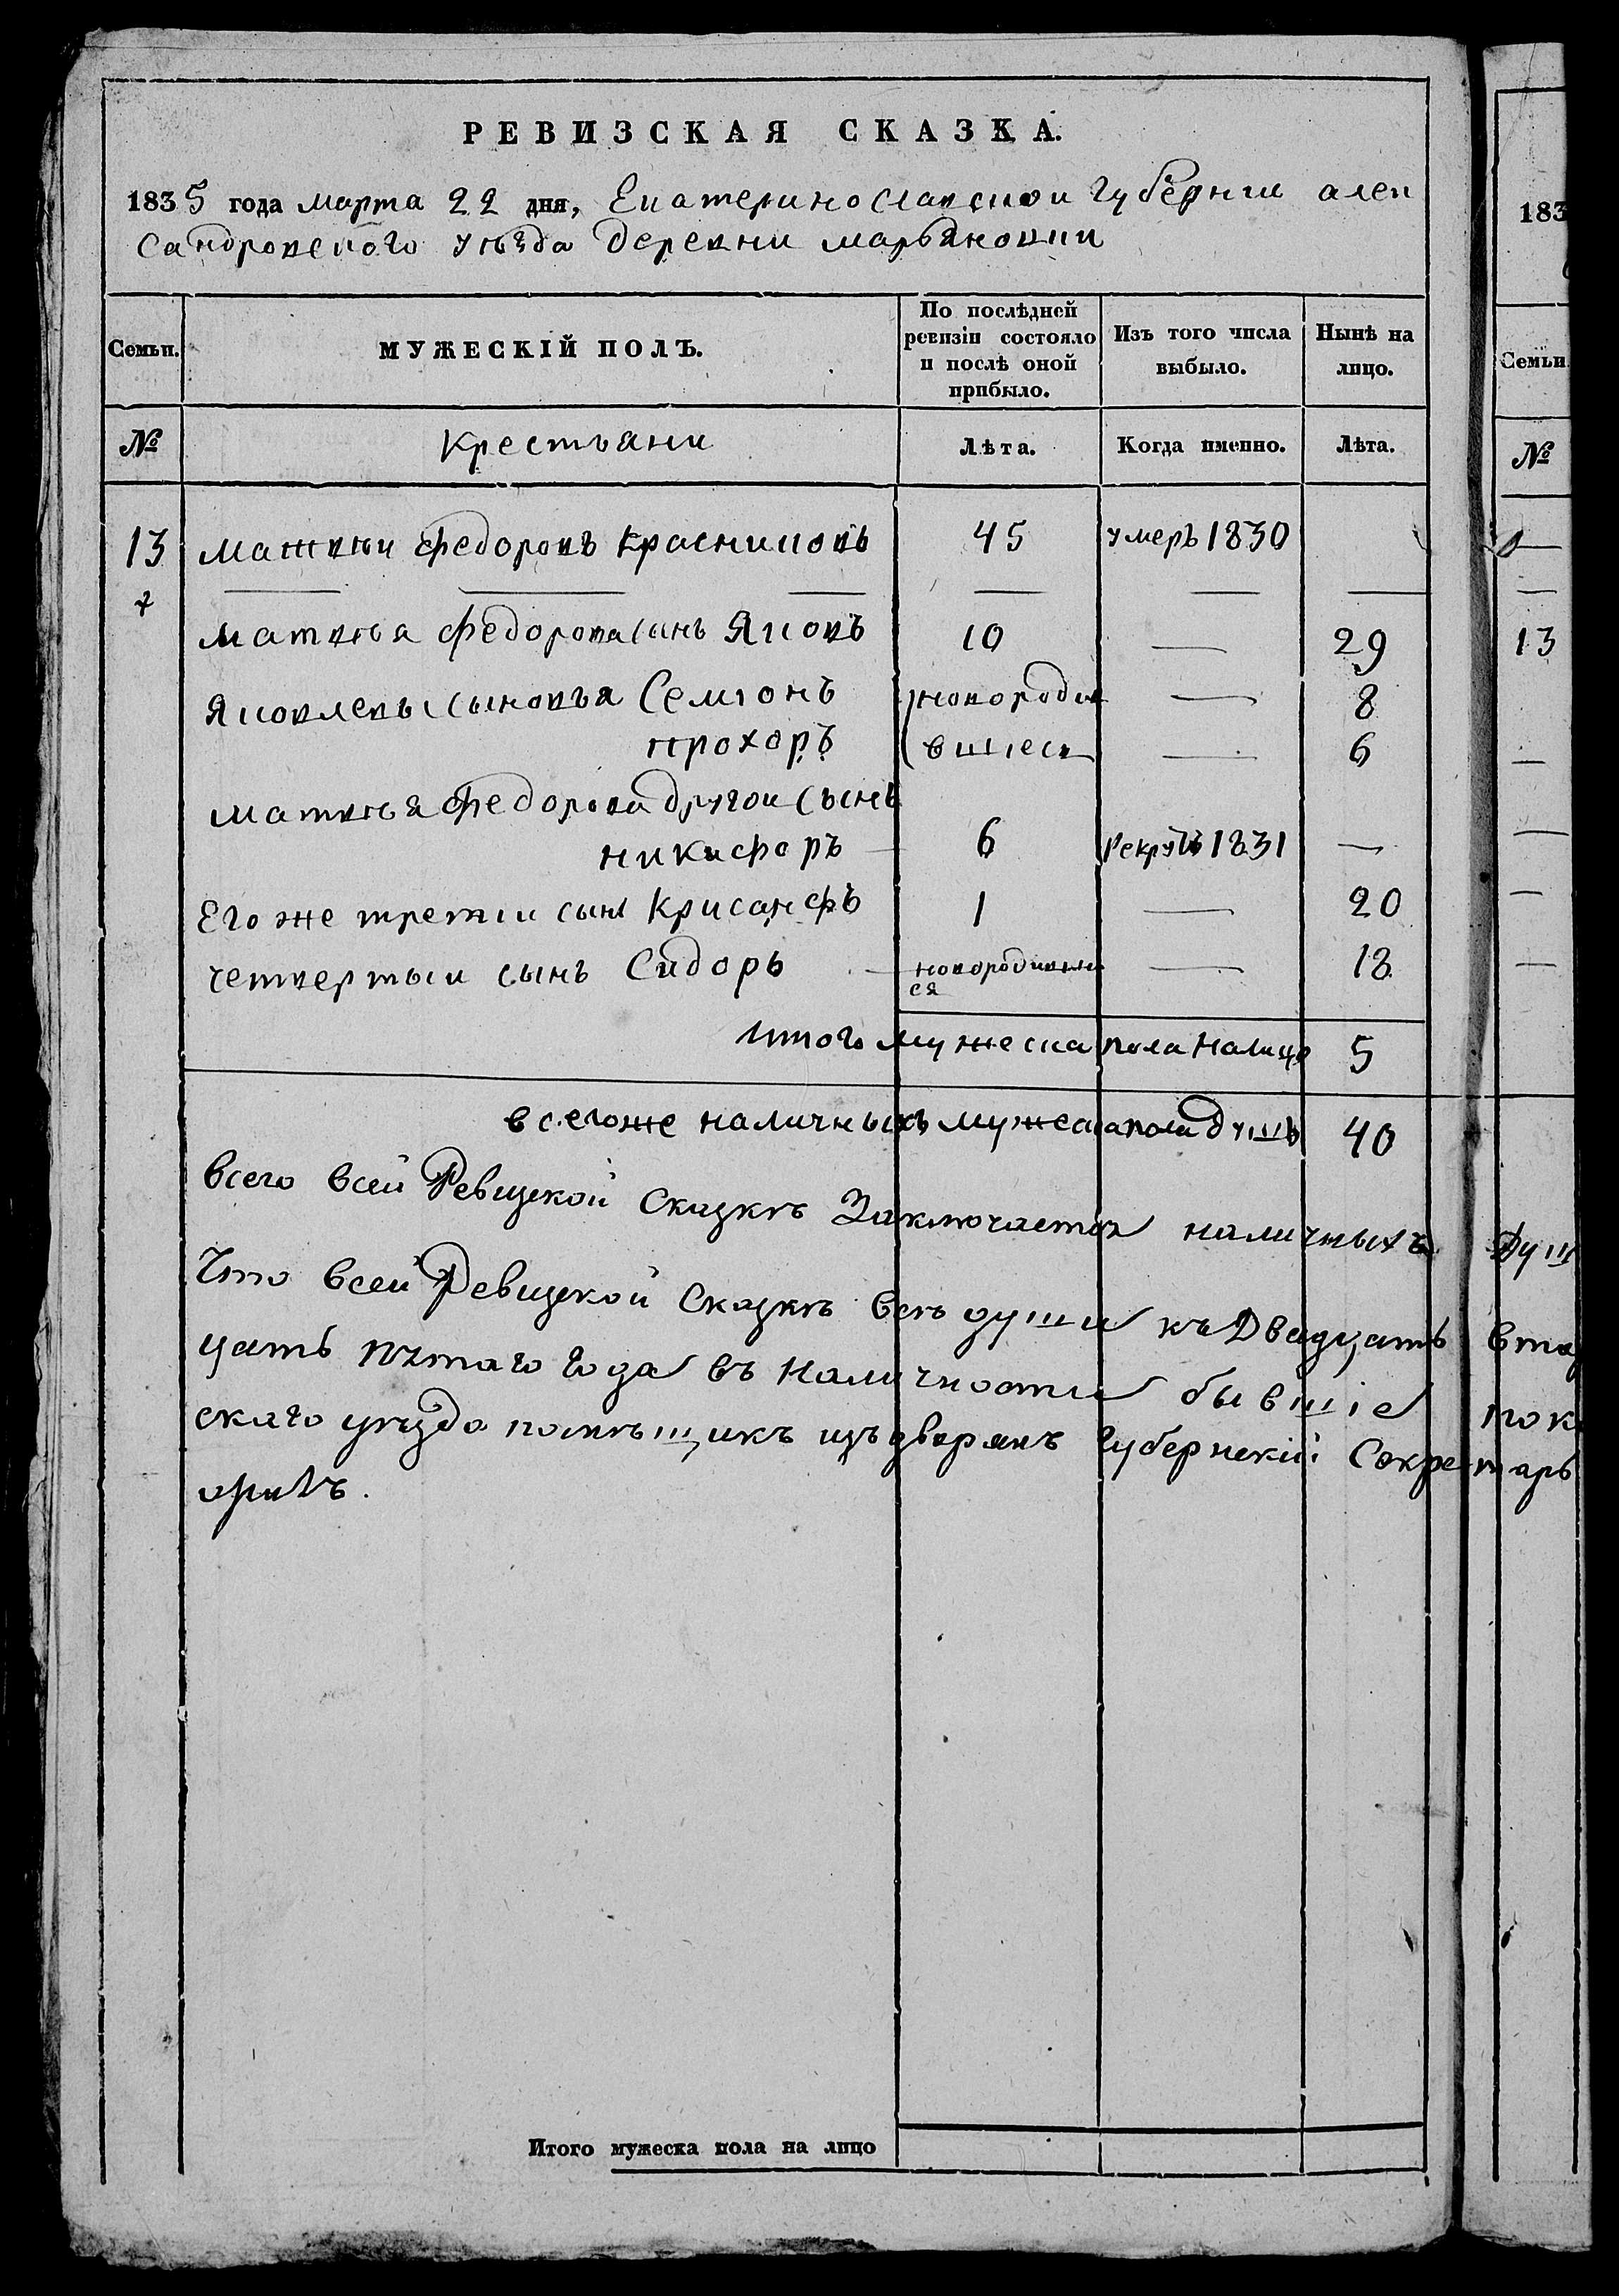 РЕВИЗСКАЯ СКАЗКА.
1835 года марта 22 дня, Екатеринославской губернии алек
сандровского уѣзда деревни марьяновки
Семьи.
МУЖЕСКІЙ ПОЛЪ.
По послѣдней ревизіи состояло и послѣ оной прибыло.
Изъ того числа выбыло.
Нынѣ на лицо.
№
Крестьяни
Лѣта.
Когда именно.
Лѣта.
13 матвѣи федоровъ красниковъ 45 умеръ 1830
матвѣя федорова сынъ Яковъ 10 — 29
Яковлевы сыновья Семіонъ новороди — 8
прохоръ вшиеся — 6
матвѣя федорова другои сынъ
никифоръ 6 Рекрутъ 1831 —
Его же третіи сынъ Крисанфъ 1 — 20
четвертыи сынъ Сидоръ новородивши
ся — 18
Итого мужеска пола налице 5
всегоже наличныхъ мужеска пола душъ 40
Всего всей Ревизской Сказкѣ Заключается наличныхъ душ
Что всей Ревизской Сказкѣ всѣ души къ Двадцать вто
цать пятаго года въ наличности бывшіе пок
скаго уѣзда помѣщикъ изъ дворянъ Губернскій Секретарь
Итого мужеска пола на лицо
183
Семьи
№
13